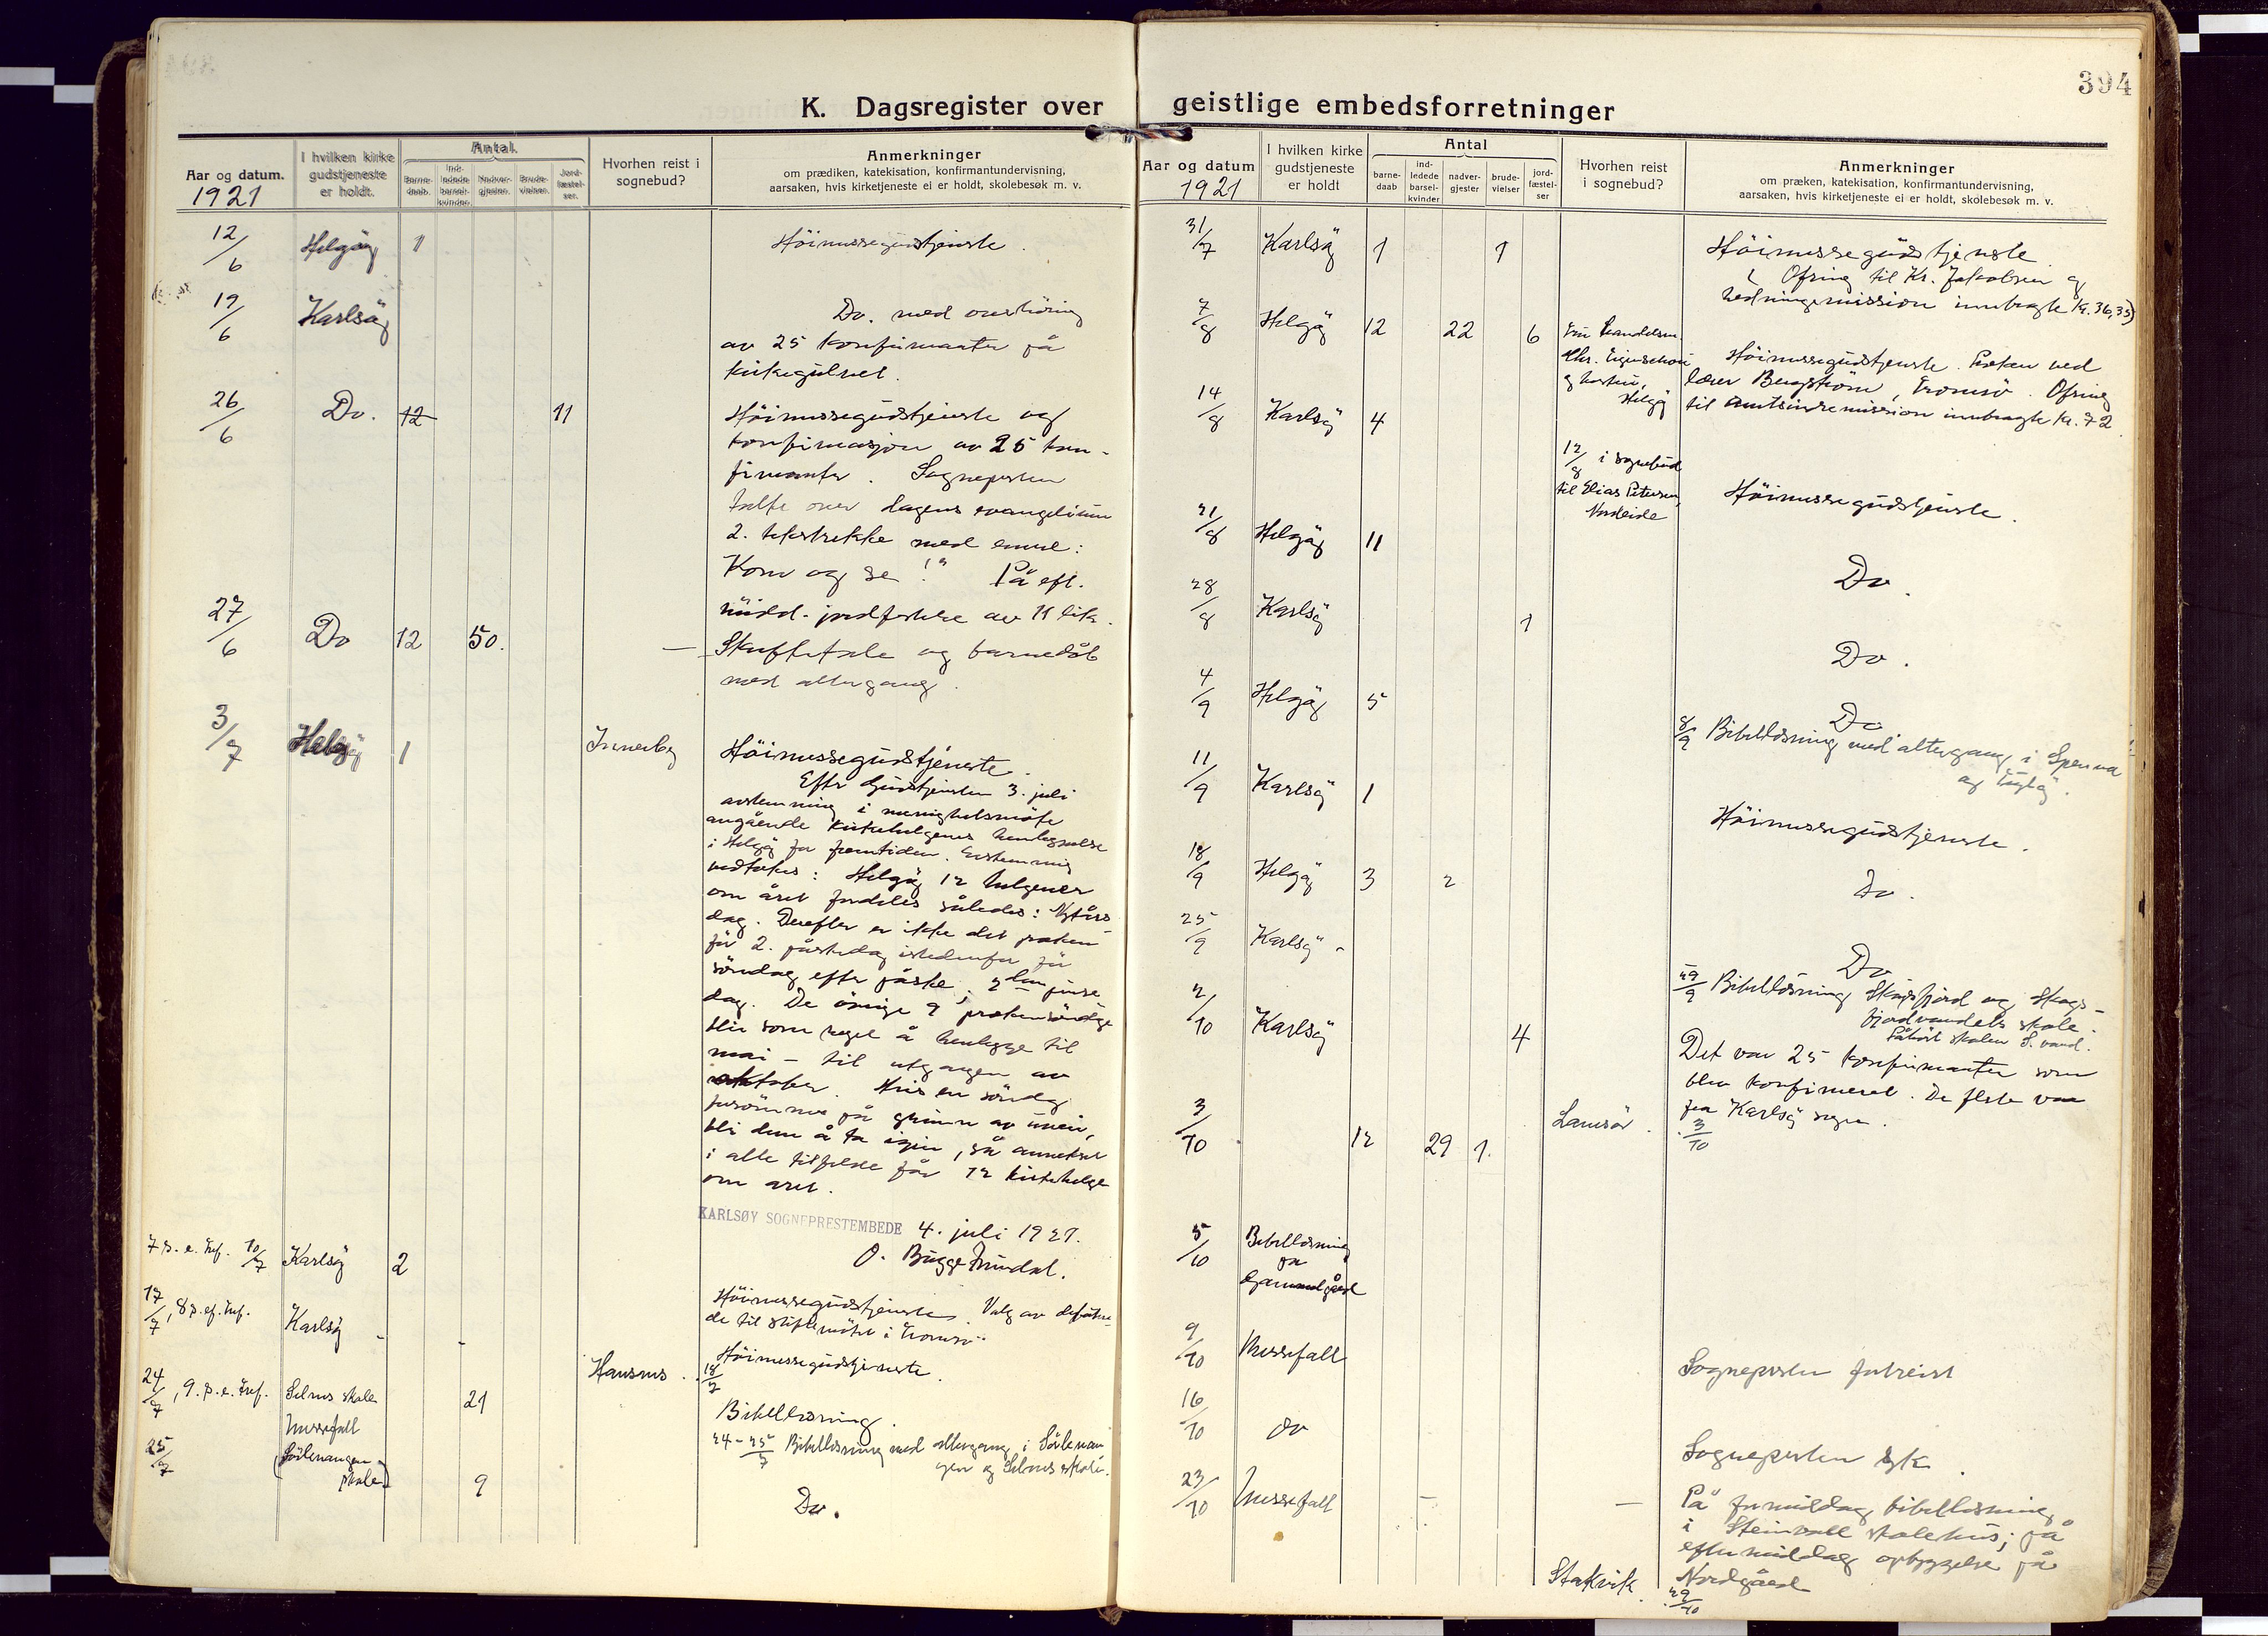 394
K. Dagsregister over geistlige embedsforretninger
Aar og datum.
1921
I hvilken kirke
gudstjeneste
er holdt.
Antal.
Barne-
daab.
Ind-
ledede
barsel-
kvinder.
Nadver-
gjester.
Brude-
vielser.
Jord-
fæstel-
ser.
Hvorhen reist i
sognebud?
Anmerkninger
om prædiken, katekisation, konfirmantundervisning,
aarsaken, hvis kirketjeneste ei er holdt, skolebesøk m. v.
12/6 Helgöy 1 Höimessegudstjeneste.
19/6 Karlsöy Do. med overhöring
av 25 konfirmanter på
kirkegulvet.
26/6 Do. 12 11 Höimessegudstjenste og
konfirmasjon av 25 kon-
firmanter. Sognepresten
talte over dagens evangelium
2. tekstrekke med emne:
Kom og se!" På eft.
midd. jordfestelse av 11 lik.
27/6 Do 12 50. — Skriftetale og barnedåb
med altergang.
3/7 Helgöy 1 Innerby Höimessegudstjeneste.
Efter Gudstjensten 3. juli
avstemning i menighetsmöte
angående kirkehelgenes henleggelse
i Helgöy for fremtiden. Enstemmig
vedtokes: Helgöy 12 helgener
om året fordeles således: Nytårs-
dag. Derefter er ikke det preken
för 2. påskedag istedenfor för
söndag efter påske; 2den pinse
dag. De övrige 9 prekensöndage
blir som regel å henlegge til
mai – til utgangen av
oktober. Hvis en söndag
forsömmes på grunn av uveir,
bli den å ta igjen, så annekset
i alle tilfelde får 12 kirkehelge
om året.
KARLSØY SOGNEPRESTEMBEDE 4. juli 1921.
O. Bugge Amundal.
7 s. e. tref. 10/7 Karlsöy 2
Höimessegudstjenste. Valg av
de til stiftsmötet i Tromsö
17/7, 8 s. ef. tref. Karlsöy - - Höimessegudstjeneste.
Hansnes . . 18/7
24/7, 9. s. e. tref. Selnes skole 21 Bibellesning.
Messefall
24–25/7 Bibellesning med altergang i Sörlenan
gen og Selnes skole.
25/7 (Sörlenangen
skole) 9 Do.
Aar og datum
1921
I hvilken kirke
gudstjeneste
er holdt
Antal
barne-
daab
ind-
ledede
barsel-
kvinder
nadver-
gjester
brude-
vielser
jord-
fæstel-
ser
Hvorhen reist
i sognebud?
Anmerkninger
om præken, katekisation, konfirmantundervisning,
aarsaken, hvis kirketjeneste ei er holdt, skolebesøk m. v.
31/7 Karlsöy 1 1 Höimessegudstjenste.
Ofring til Kr. Jakobsen og
hedningemission innbragte kr. 36,35)
7/8 Helgöy 12 22 6
og hustru,
Helgöy
Höimessegudstjenste. Preken ved
lærer Bergström, Tromsö. Ofring
til amtsindremission innbragte kr. 72.
14/8 Karlsöy 4
12/8 i sognebud
til Elias Petersen,
Nordeide
Höimessegudstjenste.
21/8 Helgöy 11 Do.
28/8 Karlsöy 1 Do.
4/9 Helgöy 5 Do
8/9 Bibellesning med altergang i Spenna
og
11/9 Karlsöy 1 Höimessegudstjenste.
18/9 Helgöy 3 2 Do.
25/9 Karlsöy - Do
29/9 Bibellesning Skogsfjord og Skogs-
fjordvandets skole.
Påhört skolen S. vand.
2/10 Karlsöy 4 Det var 25 konfirmanter som
blev konfirmeret. De fleste var
fra Karlsöy sogn.
3/10 12 29 1. Lanesör. 3/10
5/10 Bibellesning
på
Grunnlgård
9/10 Messefall Sognepresten fratreist
16/10 do Sognepresten syk.
23/10 Messefall — — På formiddag bibellesning
i Steinvoll skolehus; på
eftermiddag opbyggelse på
Nordgård
Stakvik. 29/10